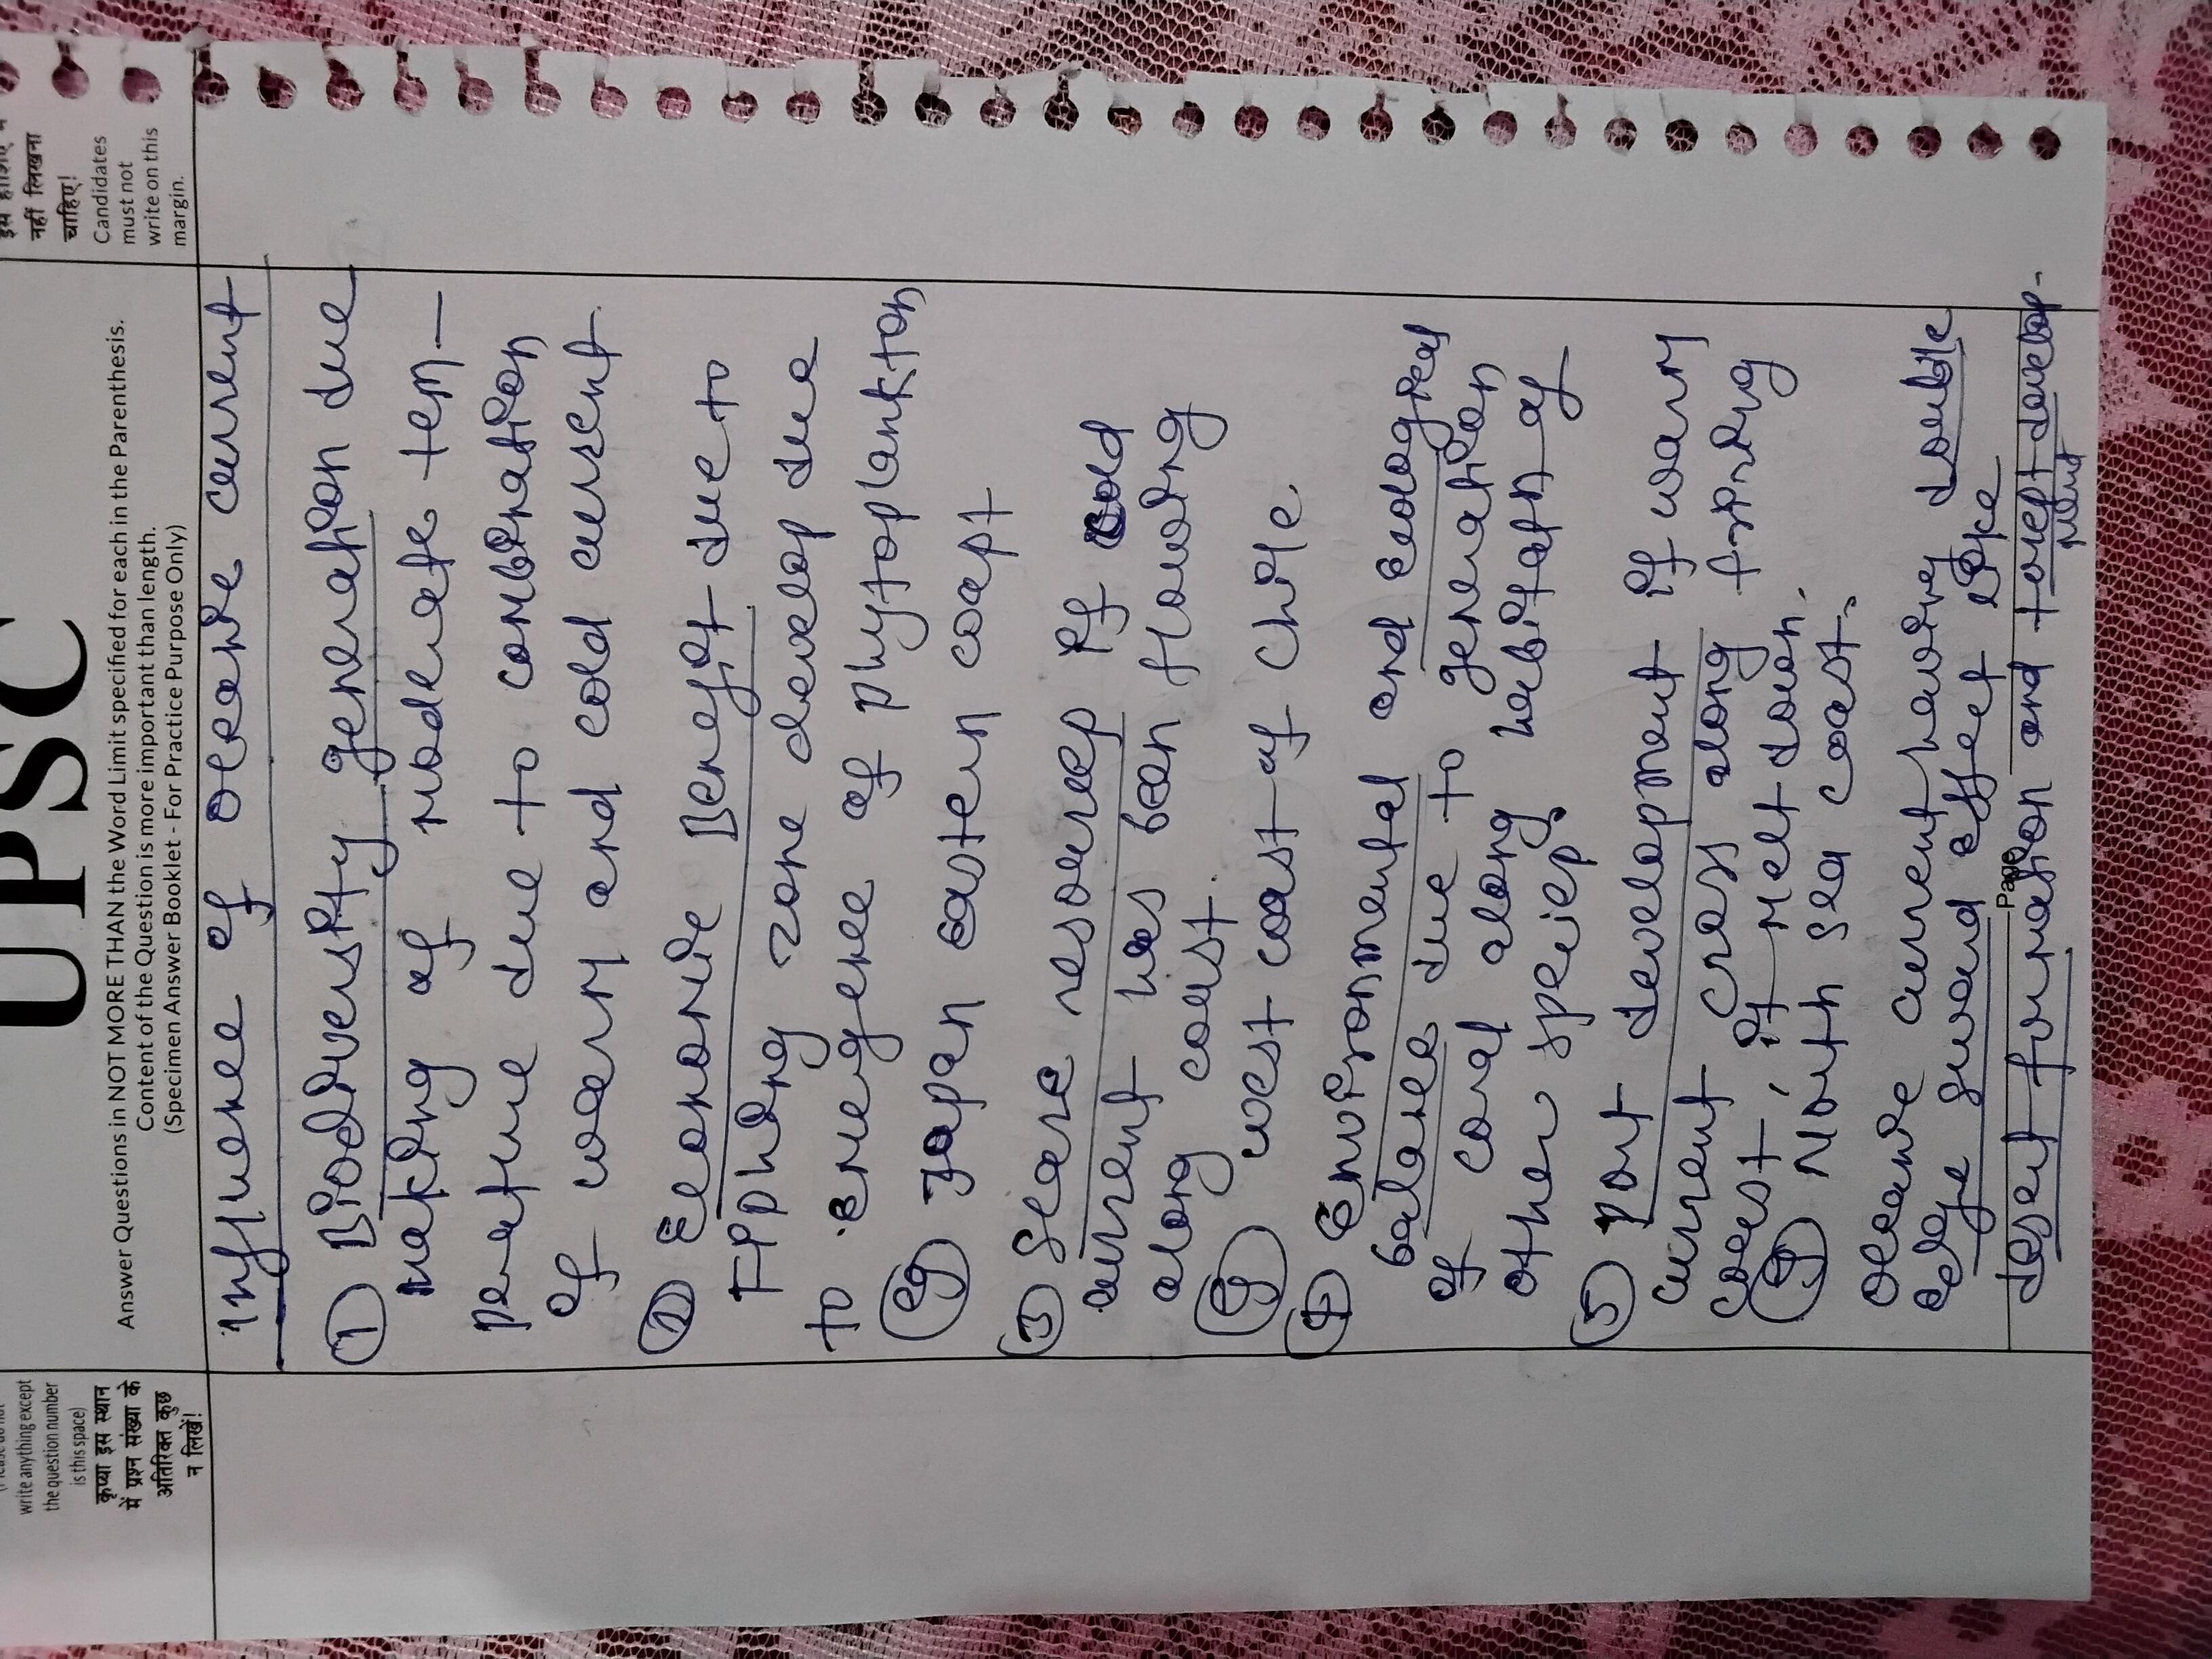 UPSC
Answer Questions in NOT MORE THAN the Word Limit specified for each in the Parenthesis.
Content of the Question is more important than length.
(Specimen Answer Booklet - For Practice Purpose Only)
write anything except
the question number
is this space)
कृप्या इस स्थान
में प्रश्न संख्या के
अतिरिक्त कुछ
न लिखें!
नहीं लिखना
चाहिए!
Candidates
must not
write on this
margin.
influence of oceanic current
① Biodiversity generation due
making of moderate tem-
perature due to combination
of warm and cold current.
② Economic Benefit due to
Fishing zone develop due
to emergence of phytoplankton
eg Japan eastern coast
③ Scare resources if cold
current has been flowing
along coast.
eg west coast of chile.
④ Environmental and ecological
balance due to generation
of coral along habitat of
other species
⑤ port development if warm
current cross along fishing
coast, it melt down.
eg North sea coast.
Oceanic current having double
edge sword effect like
desert formation and tourist develop-
ment
Page